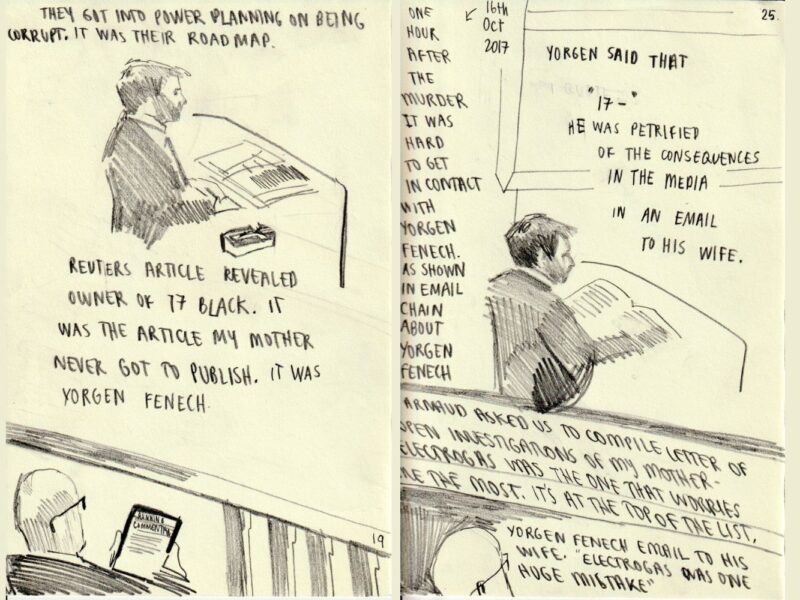 THEY GOT INTO POWER PLANNING ON BEING
CORRUPT. IT WAS THEIR ROAD MAP.
REUTERS ARTICLE REVEALED
OWNER OF 17 BLACK. IT
WAS THE ARTICLE MY MOTHER
NEVER GOT TO PUBLISH. IT WAS
YORGEN FENECH
RUNNING
COMMENTARY
19
25.
ONE
HOUR
AFTER
THE
MURDER
IT WAS
HARD
TO GET
IN CONTACT
WITH
YORGEN
FENECH.
AS SHOWN
IN EMAIL
CHAIN
ABOUT
YORGEN
FENECH
16th
Oct
2017
YORGEN SAID THAT
"17-"
HE WAS PETRIFIED
OF THE CONSEQUENCES
IN THE MEDIA
IN AN EMAIL
TO HIS WIFE.
ARNAUD ASKED US TO COMPILE LETTER OF
OPEN INVESTIGATIONS OF MY MOTHER-
ELECTROGAS WAS THE ONE THAT WORRIES
ME THE MOST. IT'S AT THE TOP OF THE LIST,
YORGEN FENECH EMAIL TO HIS
WIFE. "ELECTROGAS WAS ONE
HUGE MISTAKE"